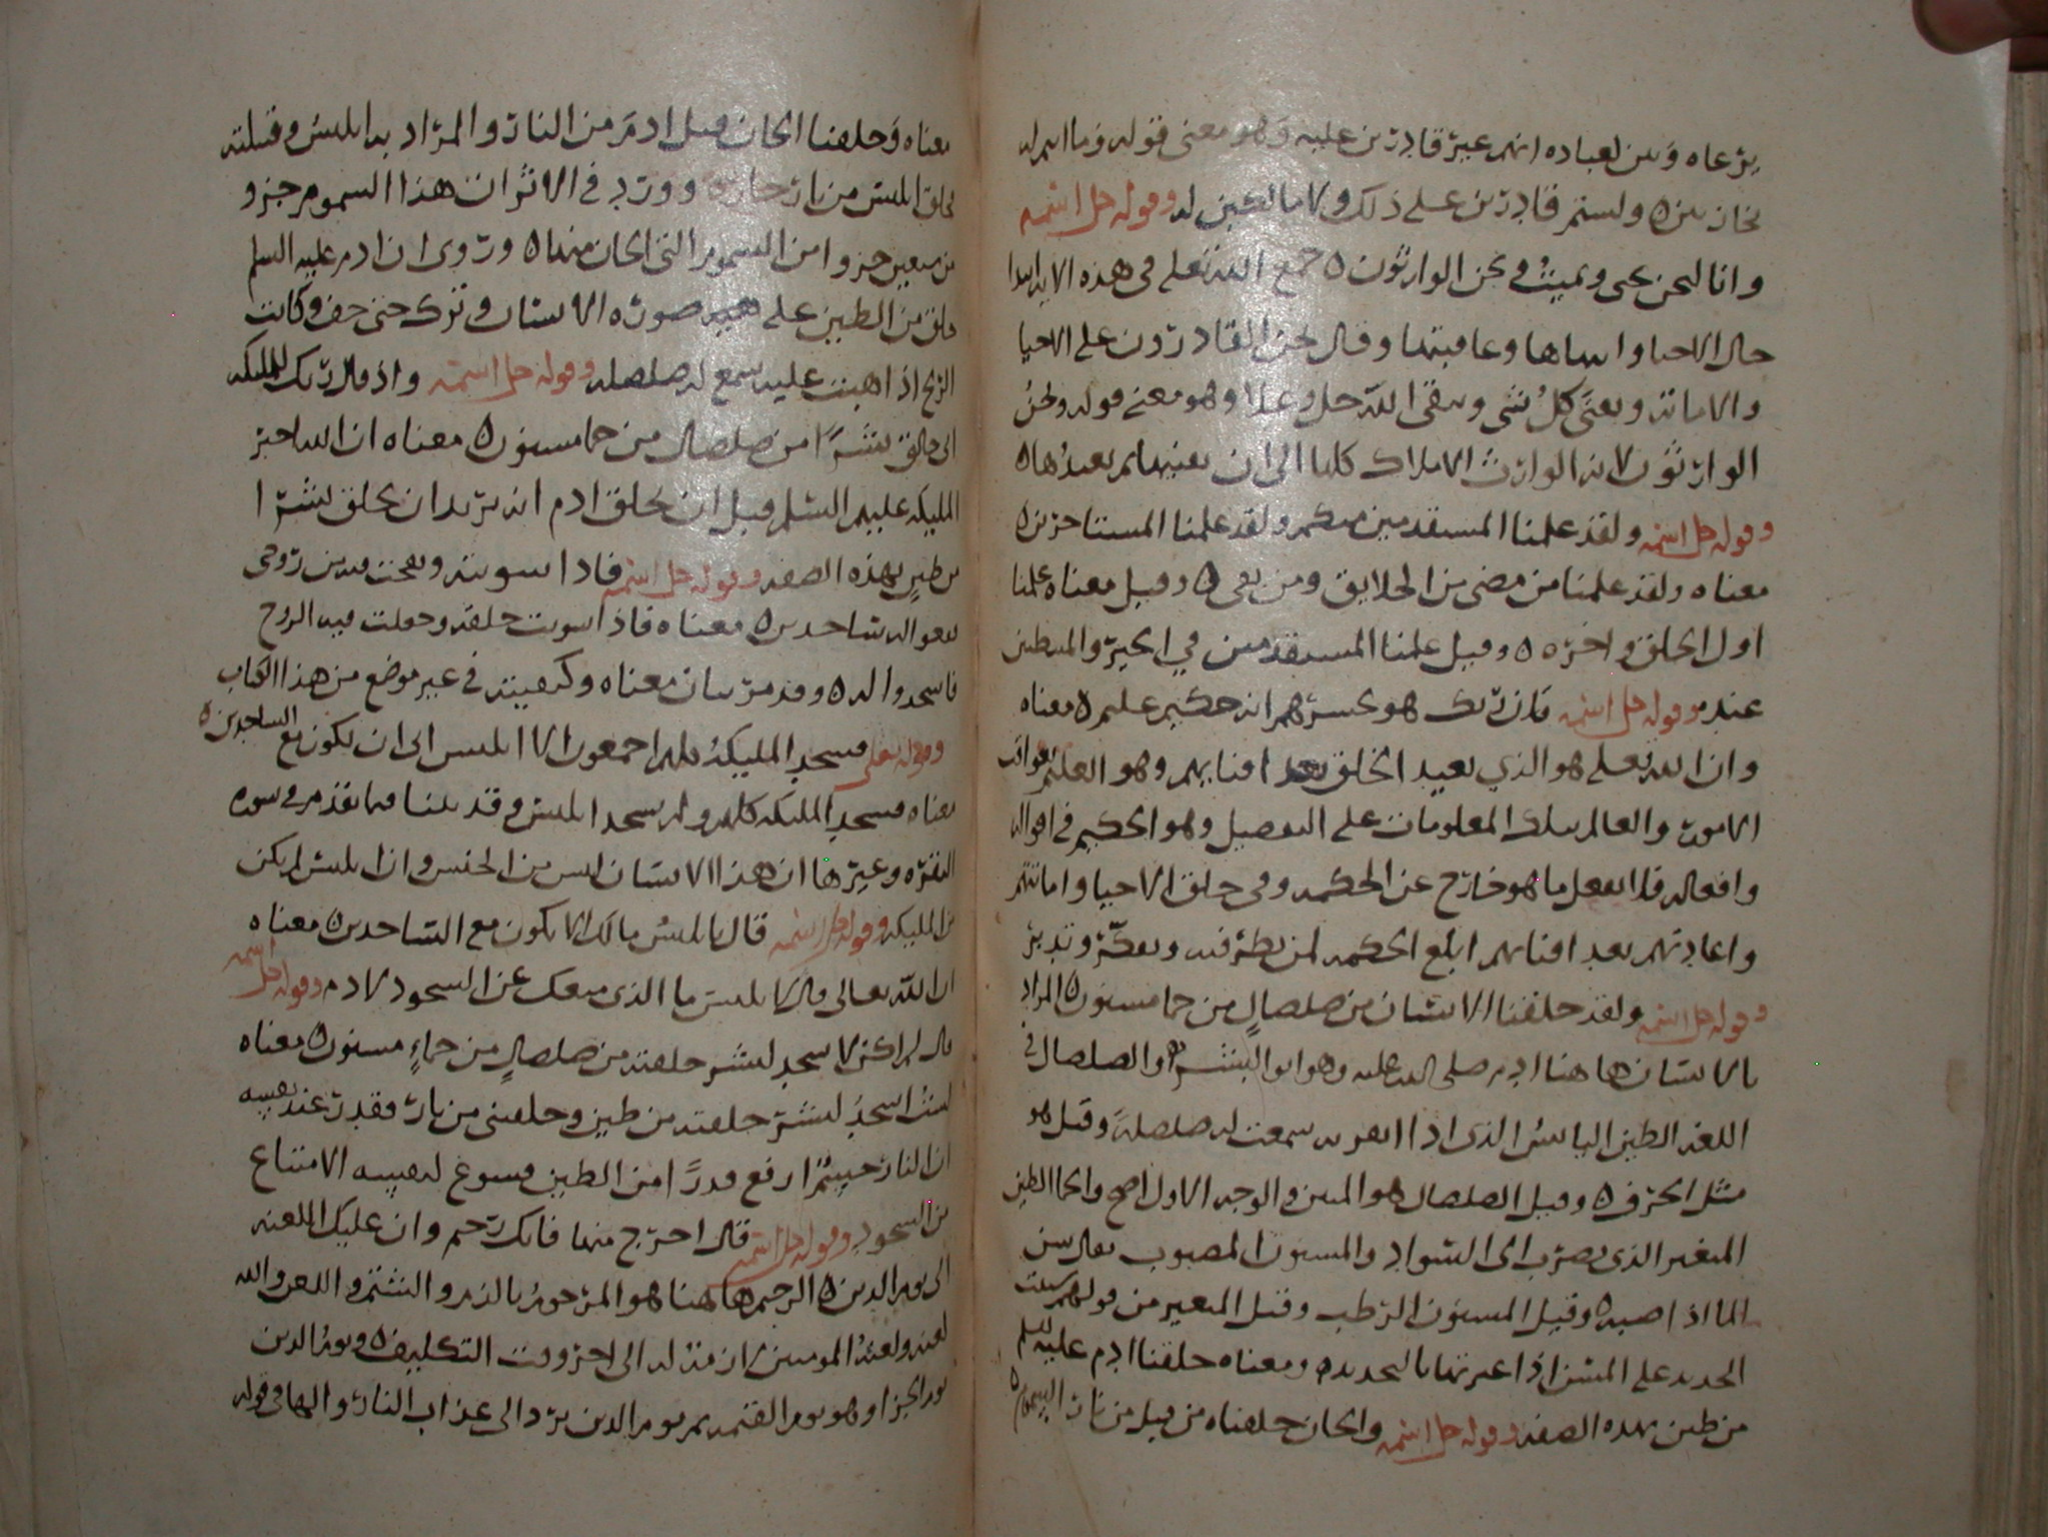 يزعاه وبين لعباده انهم غير قادرين عليه وهو معنى قوله وما انتم له
بخازنين ولستم قادرين على ذلك ولا مالكين له وقوله جل اسمه
وانا لنحن نحيي ونميت ونحن الوارثون جمع الله تعلى في هذه الايه ابتدا
حال الاحيا وانتهاها وعاقبتها وقال نحن القادرون على الاحيا
والاماتة ويفنى كل شي ويبقى الله جل وعلا وهو معنى قوله ونحن
الوارثون لانه الوارث الاملاك كلها الى ان يفنيها ثم يعيدها
وقوله جل اسمه ولقد علمنا المستقدمين منكم ولقد علمنا المستاخرين
معناه ولقد علمنا من مضى من الخلايق ومن بقى وقيل معناه علمنا
اول الخلق واخره وقيل علمنا المستقدمين في الخير والمبطين
عنه وقوله جل اسمه وان ربك هو يحشرهم انه حكيم عليم معناه
وان الله تعلى هو الذي يعيد الخلق بعد افنايهم وهو العليم بعواقب
الامور والعالم بتلك المعلومات على التفصيل وهو الحكيم في اقواله
وافعاله فلا يفعل ما هو خارج عن الحكمه وفي خلق الاحيا واماتتهم
واعادتهم بعد افنايهم ابلغ الحكمه لمن نظر فيه وتفكر وتدبر
وقوله جل اسمه ولقد خلقنا الانسان من صلصال من حما مسنون المراد
بالانسان هاهنا ادم صلى الله عليه وهو ابو البشر والصلصال في
اللغه الطين اليابس الذي اذا انقر به سمعت له صلصلة وقيل هو
مثل الخزف وقيل الصلصال هو المنتن والوجه الاول اصح والحما الطين
المتغير الذي يضرب الى السواد والمسنون المصبوب يقال سن
الما اذا صبه وقيل المسنون الرطب وقيل المتغير من قولهم سننت
الحديد على المسن اذا غيرتها بالتحديد ومعناه خلقنا ادم عليه السلم
من طين بهذه الصفه وقوله جل اسمه والجان خلقناه من قبل من نار السموم
معناه وخلقنا الجان قبل ادم من النار والمراد به ابليس وقبيلته
خلق ابليس من نار حارة وورد في الاثر ان هذا السموم جزو
من سبعين جزوا من السموم التي الجان منها وروي ان ادم عليه السلم
خلق من الطين على صوره الانسان وترك حتى جف وكانت
الريح اذا هبت عليه سمع له صلصله وقوله جل اسمه واذ قال ربك للمليكه
اني خالق بشرا من صلصال من حما مسنون معناه ان الله اخبر
المليكه عليهم السلم قبل ان يخلق ادم انه يريد ان يخلق بشرا
من طين بهذه الصفه وقوله جل اسمه فاذا سويته ونفخت فيه من روحي
فقعوا له ساجدين معناه فاذا سويت خلقه وجعلت فيه الروح
فاسجدوا له وقد مر بيان معناه وكيفيته في غير موضع من هذا الكتاب
وقوله تعلى فسجد المليكة كلهم اجمعون الا ابليس ابى ان يكون مع الساجدين
معناه فسجد المليكه كلهم ولم يسجد ابليس وقد بينا فيما تقدم في سوره
البقره وغيرها ان هذا الانسان ليس من الجنس وان ابليس لم يكن
من المليكه وقوله جل اسمه قال يابليس مالك الا تكون مع الساجدين معناه
ان الله تعالى قال لابليس ما الذي منعك عن السجود لادم وقوله جل اسمه
قال لم اكن لاسجد لبشر خلقته من صلصال من حماء مسنون معناه
لست اسجد لبشر خلقته من طين وخلقتني من نار فقدر عند نفسه
ان النار جسما ارفع قدرا من الطين فسوغ لنفسه الامتناع
من السجود وقوله جل اسمه قال اخرج منها فانك رجيم وان عليك اللعنه
الى يوم الدين الرجيم هاهنا هو المرجوم بالذم والشتم واللعن والله
لعنه ولعنه المومنين لازمة له الى اخر وقت التكليف ويوم الدين
يوم الجزا وهو يوم القيمه ثم يوم الدين يرد الى عذاب النار والها في قوله